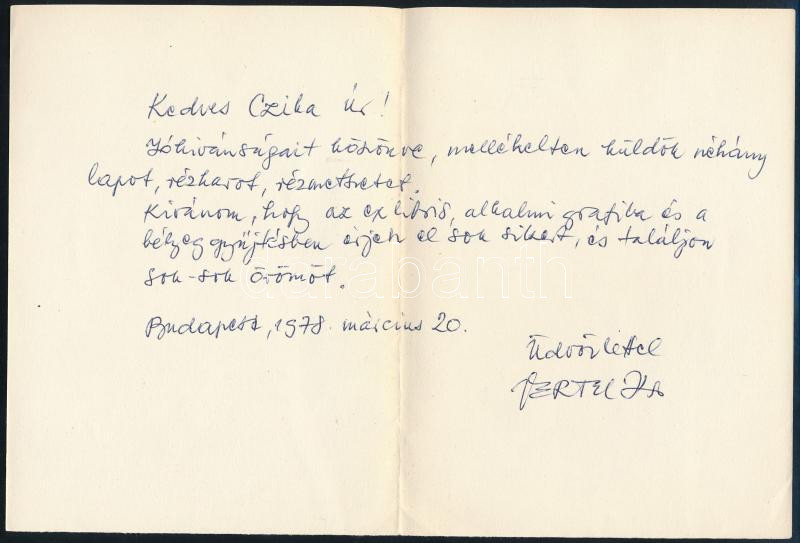 Kedves Czika Úr!
Jókivánságait köszönve, mellékelten küldök néhány
lapot, rézkarcot, rézmetszetet.
Kivánom, hogy az exlibris, alkalmi grafika és a
bélyeggyűjtésben érjen el sok sikert, és találjon
sok-sok örömöt.
Budapest, 1978. március 20.
Üdvözlettel
VERTEL
darabanth